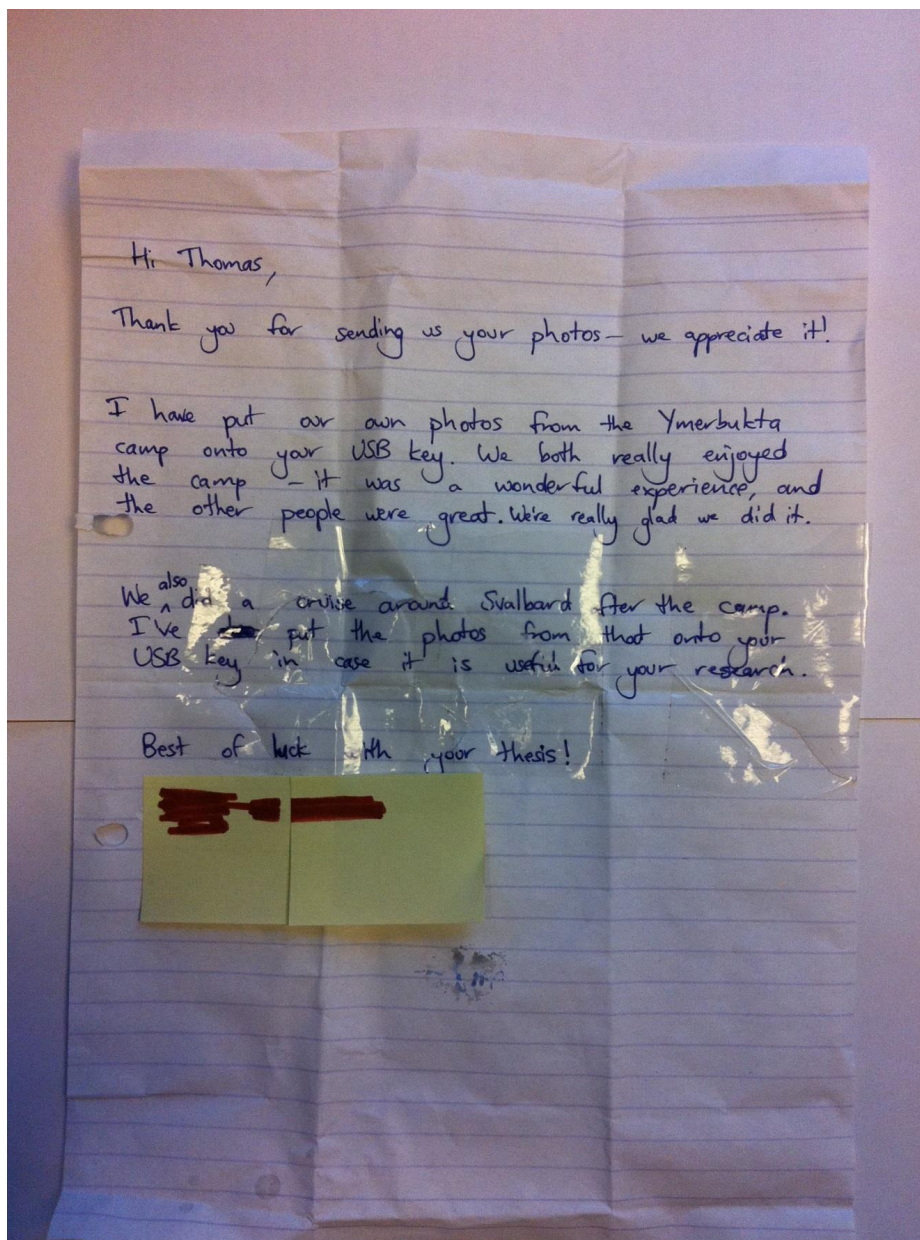 Hi Thomas,
Thank you for sending us your photos – we appreciate it!
I have put our own photos from the Ymerbukta
camp onto your USB key. We both really enjoyed
the camp – it was a wonderful experience, and
the other people were great. We're really glad we did it.
We also did a cruise around Svalbard after the camp.
I've put the photos from that onto your
USB key in case it is useful for your research.
Best of luck with your thesis!